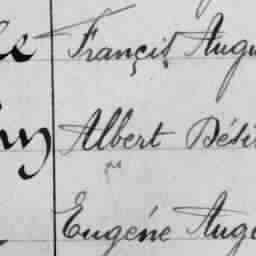 François Augu
Albert Dési
Eugéne Aug